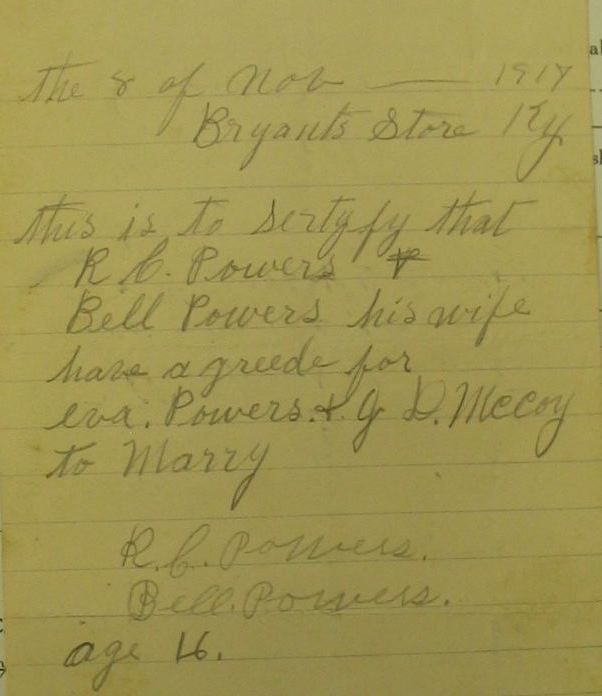 the 8 of Nov —— 1917
Bryants Store Ky
this is to sertyfy that
R C. Powers &
Bell Powers his wife
have agreede for
eva. Powers. & J D. McCoy
to Marry
R. C. Powers.
Bell. Powers.
age 16.